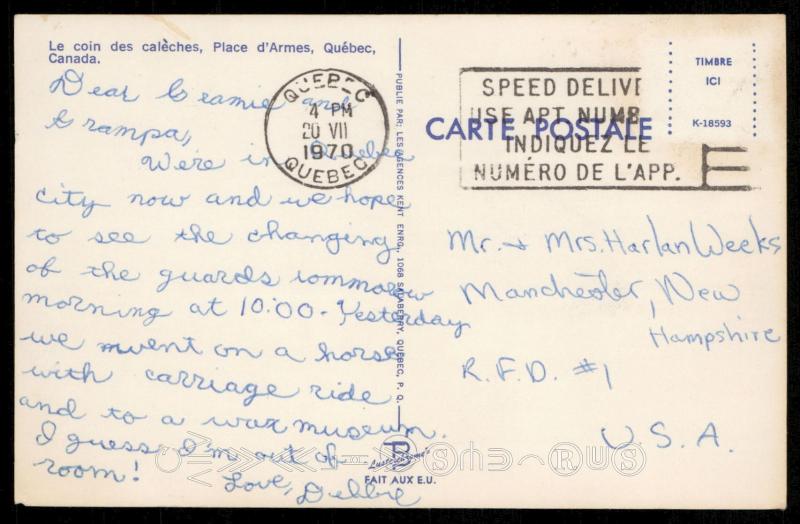 Le coin des calèches, Place d'Armes, Québec,
Canada.
Dear Geamie and
Grampa,
We're in Quebec
city now and we hope
to see the changing
of the guards tommorow
morning at 10:00. Yesterday
we went on a horse
with carriage ride
and to a wax museum.
I guess I'm out of
room!
Love, Debbie
QUEBEC
4 PM
20 VII
1970
QUEBEC
PUBLIE PAR: LES AGENCES KENT ENRG., 1068 SALABERRY, QUEBEC, P. Q.
FAIT AUX E.U.
SPEED DELIVE
USE APT NUMB
INDIQUEZ LE
NUMÉRO DE L'APP.
CARTE POSTALE
TIMBRE
ICI
K-18593
Mr. + Mrs. Harlan Weeks
Manchester, New
Hampshire
R.F.D. #1
U.S.A.